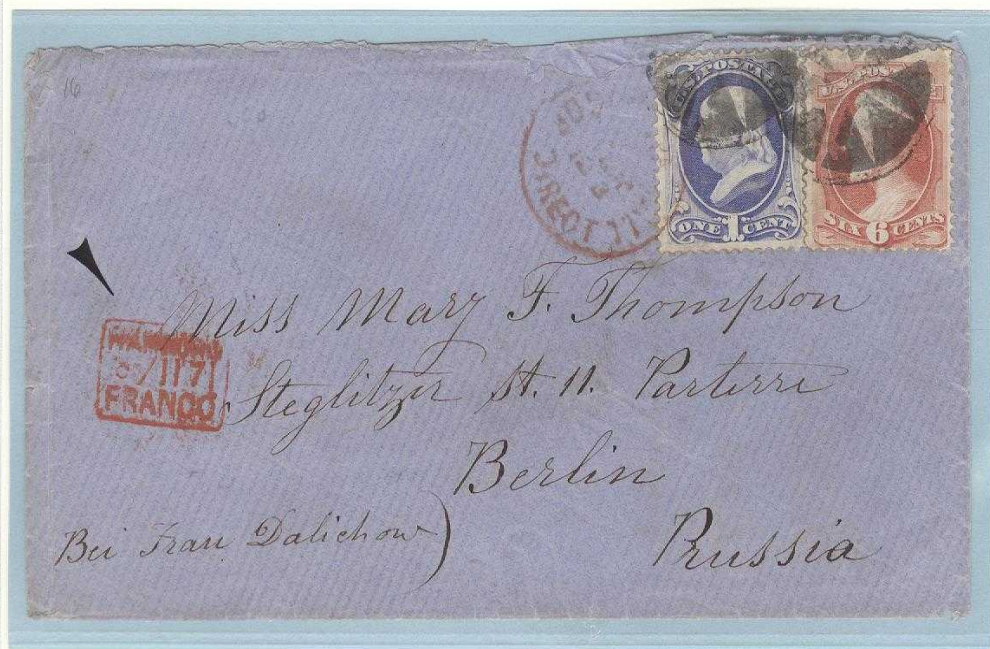 16
U.S. POSTAGE
ONE 1 CENT
U.S. POSTAGE
SIX 6 CENTS
DIRECT
Miss Mary F. Thompson
Steglitzer St. 11. Parterre
Berlin
Prussia
Bei Frau Dalichow)
FRANCO